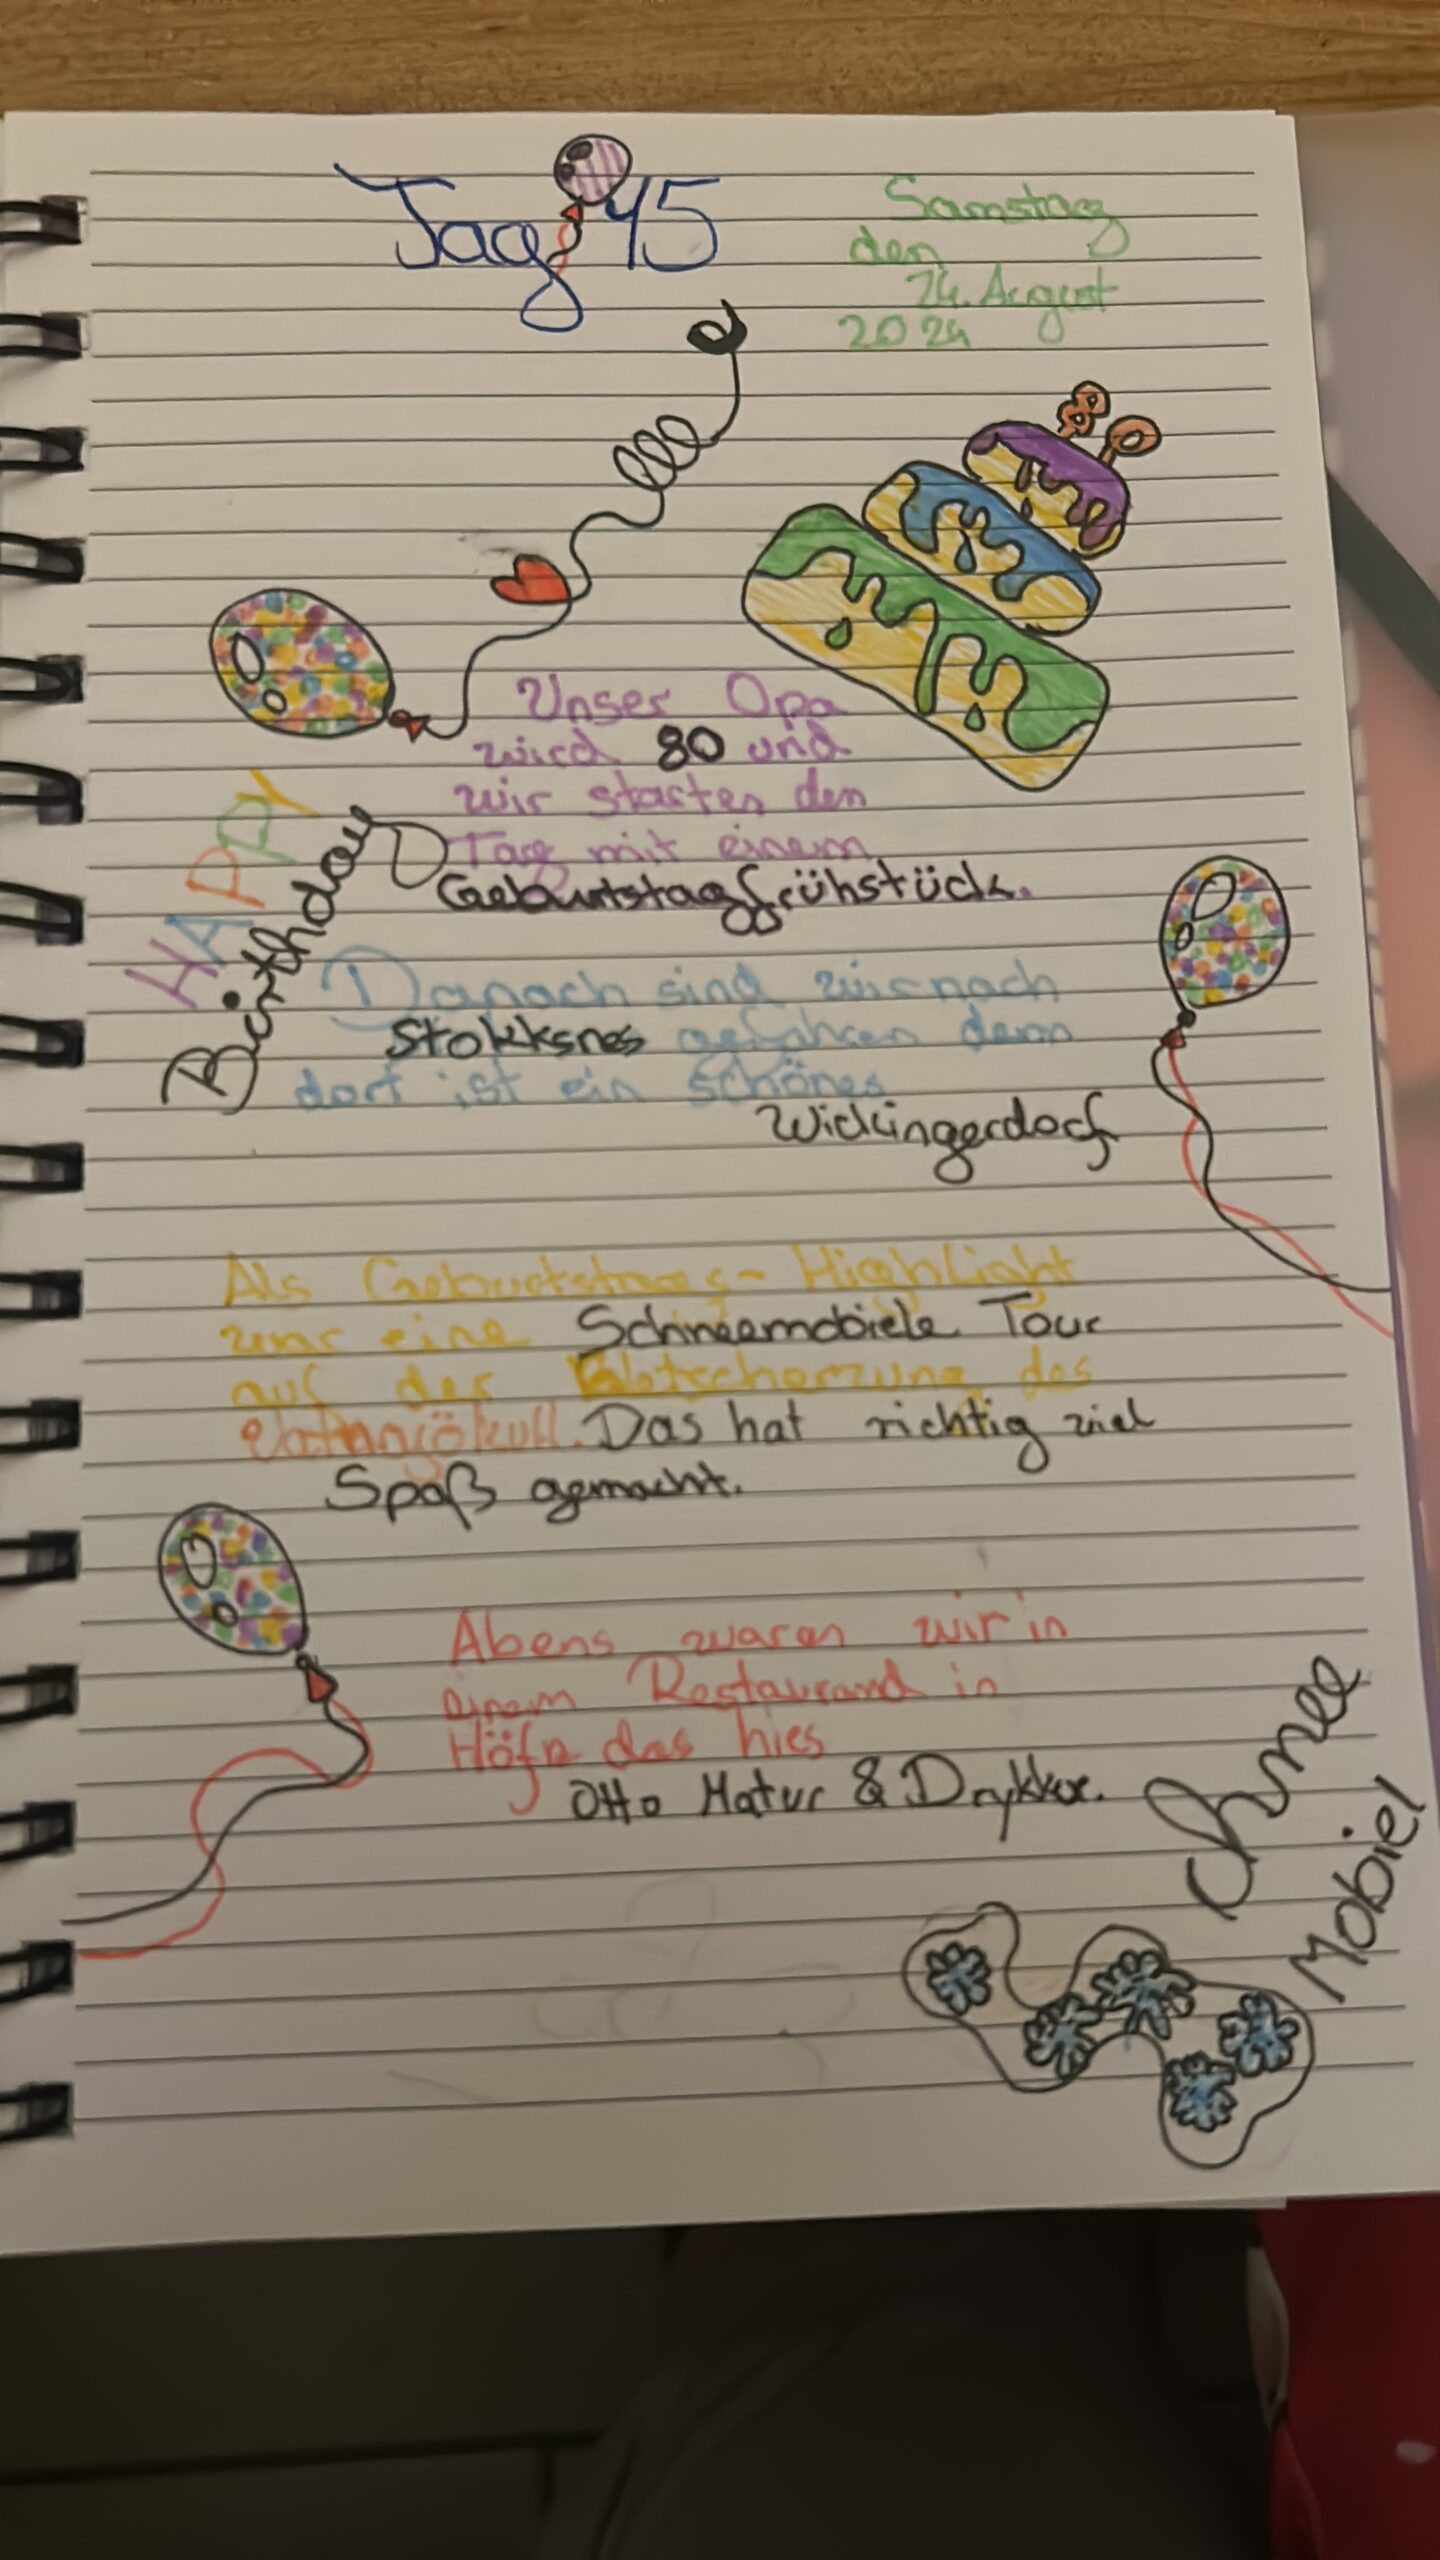 Tag 45
Samstag
den
24. August
2024
80
Unser Opa
wird 80 und
wir starten den
Tag mit einem
Geburtstagfrühstück.
HAPPY
Birthday
Danach sind wir nach
Stokksnes gefahren denn
dort ist ein schönes
Wickingerdorf
Als Geburtstags-Highlight
war eine Schneemobiele Tour
auf der des
Vatnajökull. Das hat richtig viel
Spaß gemacht.
Abens waren wir in
einem Restaurand in
Höfn das hies
Otto Matur & Drykkur.
Schnee
Mobiel